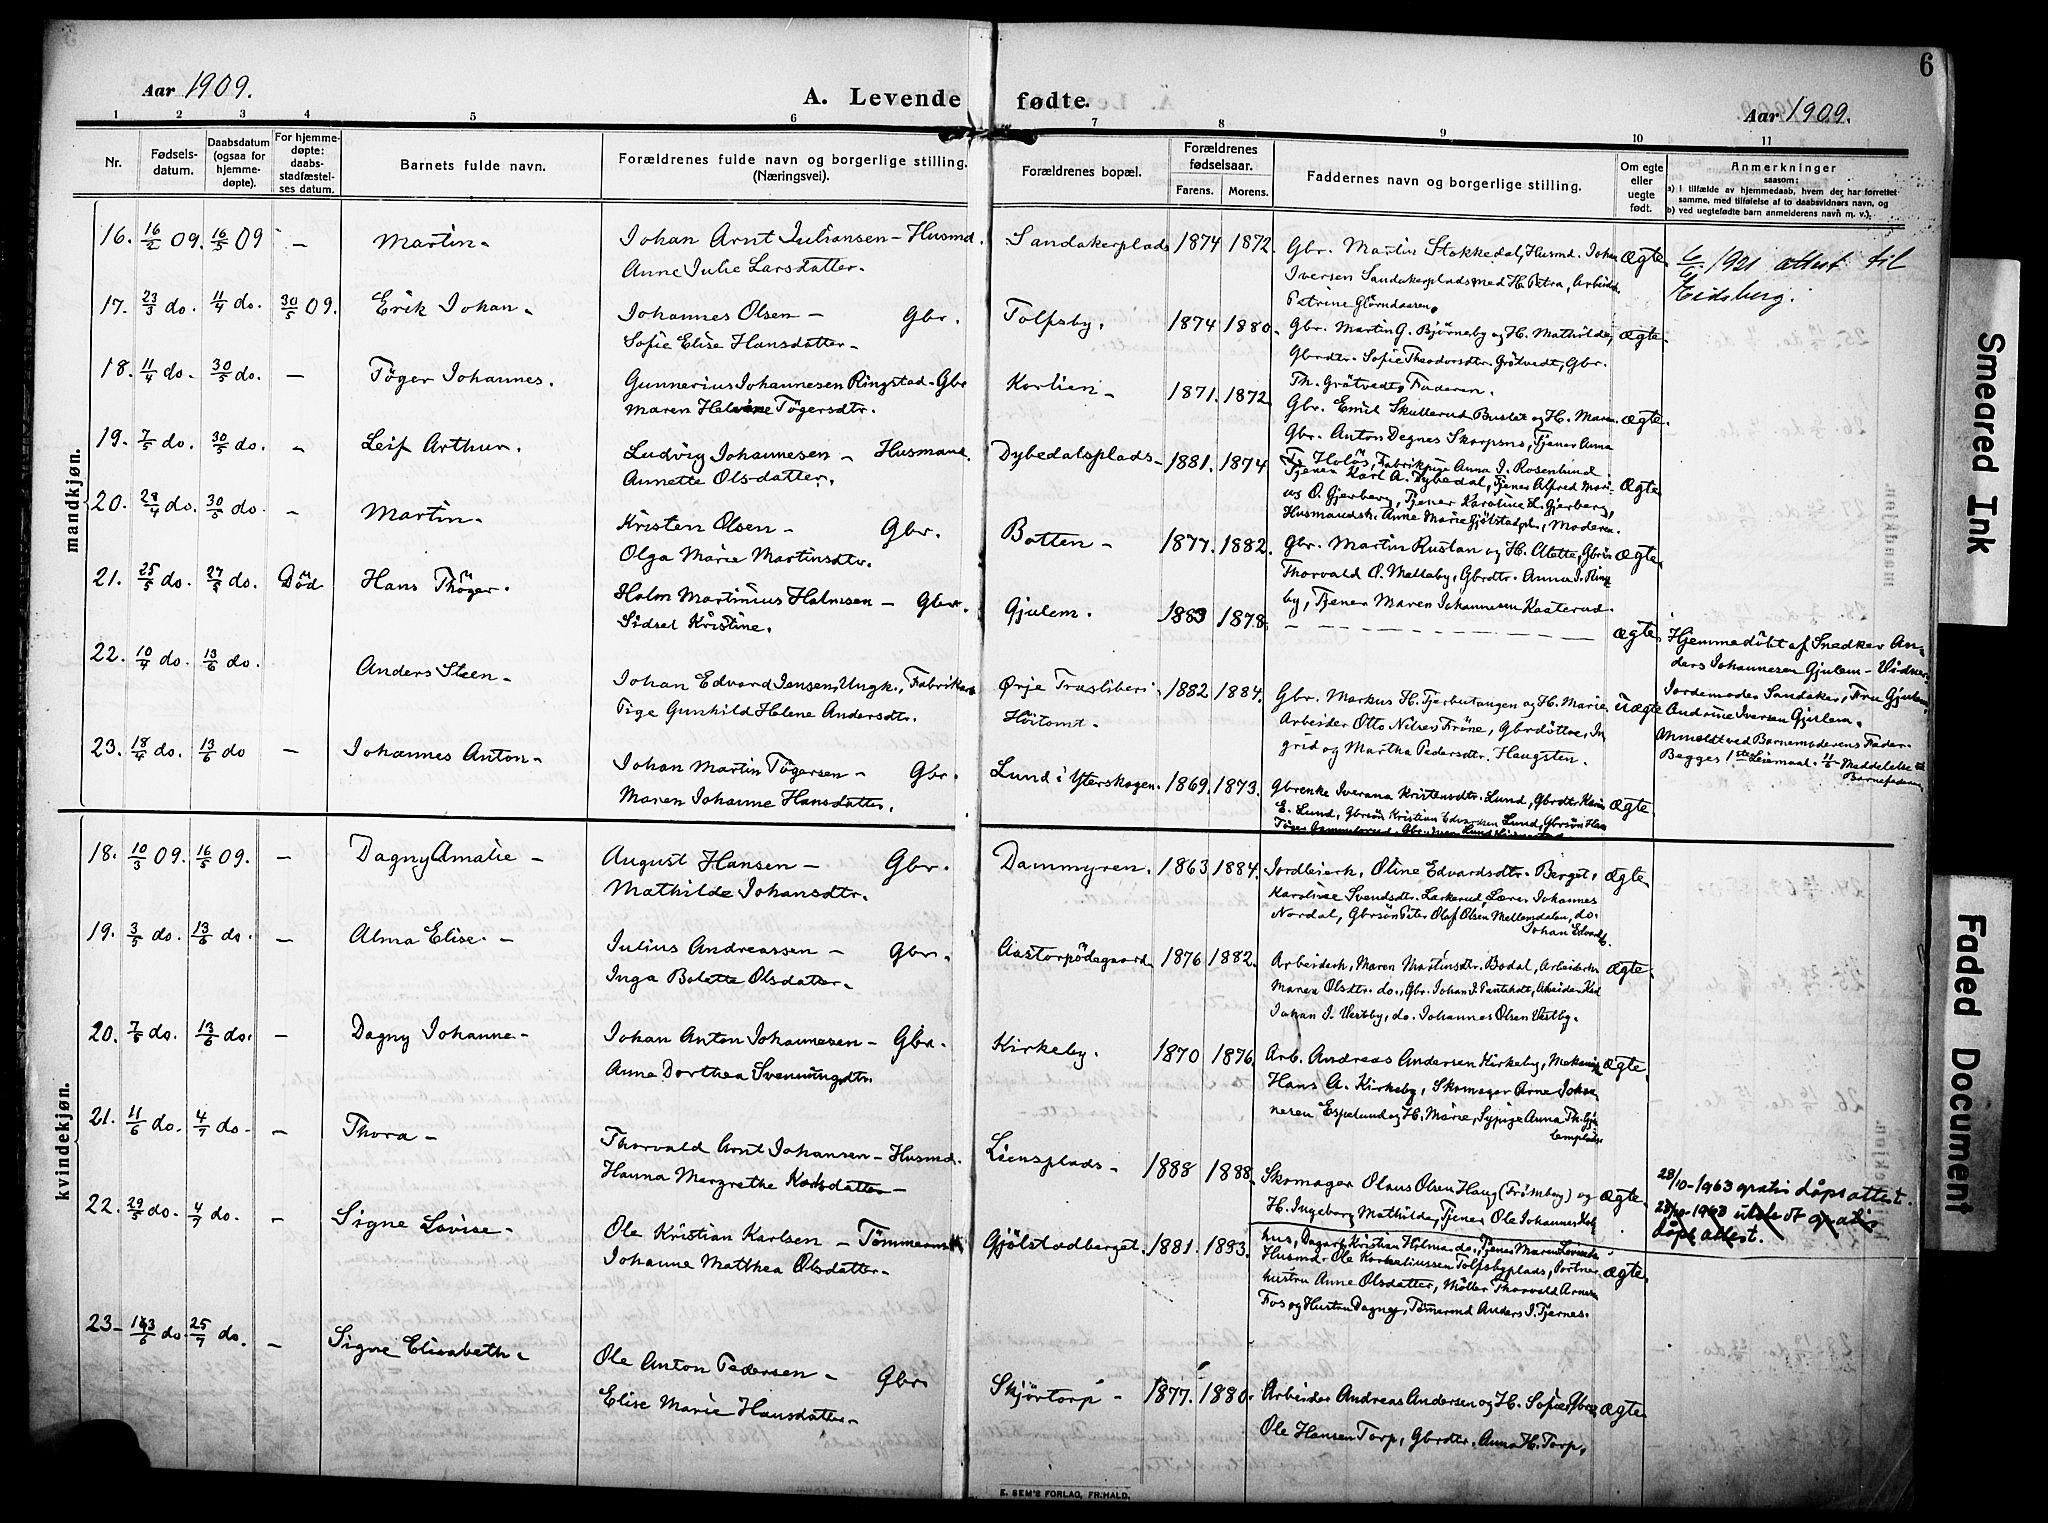 6
Aar 1909.
A. Levende fødte.
Aar 1909.
1 2 3 4 5 6 7 8 9 10 11
Nr.
Fødsels-
datum.
Daabsdatum
(ogsaa for
hjemme-
døpte).
For hjemme-
døpte:
daabs-
stadfæstel-
ses datum.
Barnets fulde navn.
Forældrenes fulde navn og borgerlige stilling.
(Næringsvei).
Forældrenes bopæl.
Forældrenes
fødselsaar.
Farens. Morens.
Faddernes navn og borgerlige stilling.
Om egte
eller
uegte
født.
Anmerkninger
saasom:
a) I tilfælde av hjemmedaab, hvem der har forrettet
samme, med tilføielse af to daabsvidners navn, og
b) ved uegtefødte barn anmelderens navn m. v.).
mandkjøn.
16. 16/2 09. 16/5 09 – Martin – Johan Arnt Juliansen – Husmd. Sandakerplads 1874 1872. Gbr. Martin Stokkedal, Husmd. Johan ægte
Anne Julie Larsdatter. Iversen Sandakerplads med H. Petra, Arbeids.
Petrine
6/6 1921 attest til
Eidsberg.
17. 23/3 do. 11/4 do. 30/5 09. Erik Johan – Johannes Olsen – Gbr. Tolfsby. 1874 1880. Gbr. Martin G. Bjørneby og H. Mathilde, ægte
Sofie Elise Hansdatter – Gbrdtr. Sofie Theodorsdtr. Grötvedt, Gbr.
Th. Grötvedt, Faderen.
18. 11/4 do. 30/5 do. – Töger Johannes. Gunnerius Johannesen Ringstad – Gbr Korlien – 1871. 1872. Gbr. Emil Skullerud Buslet og H. Maren ægte.
Maren Helvine Tögersdtr. Gbr. Anton Degnes Skarpsno, Tjener Anna
Holös, Fabrikpige Anna J. Rosenlund
19. 7/5 do. 30/5 do. – Leif Arthur. Ludvig Johannesen – Husmand. Dybedalsplads – 1881. 1874 Tjener Karl A. Dybedal, Tjener Alfred Mari- ægte
Annette Olsdatter. us O. Gjerberg, Tjener Karoline L. Gjerberg,
Husmandsk. Anne Marie Gjølstadpl., Moderen
20. 28/4 do. 30/5 do. – Martin – Kristen Olsen – Gbr. Botten – 1877. 1882. Gbr. Martin Rustan og H. Alette, Gbrsön ægte
Olga Marie Martinsdtr. Thorvald O. Melleby, Gbrdtr. Anna J. Ring-
by, Tjener Maren Johannesen Kaaterud.
21. 25/5 do. 27/5 do. Död Hans Thöger. Holm Martinius Holmsen – Gbr. Gjulem. 1883 1878. – – – – – ægte
Sidsel Kristine.
Hjemmedöbt af Snedker An-
ders Johannesen Gjulem – Vidner
Jordemoder Sandaker, Fru Gjulem,
Andrine Iversen Gjulem.
22. 10/4 do. 13/6 do. Anders Steen – Johan Edvard Jensen, Ungk., Fabrikarb Ørje Træsliberi – 1882. 1884. Gbr. Markus H. Tjerbutangen og H. Marie, uægte
Pige Gunhild Helene Andersdtr. Höitomt. Arbeider Otto Nilsen Fröne, Gbrdöttre, In
grid og Martha Pedersdtr. Haugsten.
Anmeldt ved Barnemoderens Fader.
Begges 1ste Leiemaal. 11/6 Meddelelse
Barnefaderen
23. 18/4 do. 13/6 do – Johannes Anton – Johan Martin Tögersen – Gbr. Lund i Ytterskogen. 1869. 1873. Gbrenke Iverana Kristensdtr. Lund, Gbrdtr Karin ægte.
Maren Johanne Hansdatter. E. Lund, Gbrsön Kristian Edvardsen Lund, Gbrsön Hans
kvindekjøn.
18. 10/3 09. 16/5 09. – Dagny Amalie – August Hansen – Gbr. Dammyren. 1863 1884. Jordleierk. Oline Edvardsdtr. Berget, ægte
Mathilde Johansdtr. Karoline Svendsdtr. Lerkerud, Lærer Johannes
Nordal, Gbrsön Peter Olaf Olsen Mellemdalen, do.
Johan Edvards.
19. 3/5 do. 13/6 do. – Alma Elise. – Julius Andreassen – Gbr. Aastorpödegaard 1876 1882. Arbeiderk. Maren Martinsdtr. Bodal, Arbeiderk ægte
Inga Bolette Olsdatter. Maren Olsdtr. do., Gbr. Johan J. , Arbeider Karl
Johan J. Vestby, do. Johannes Olsen Vestby.
20. 7/5 do. 13/6 do. – Dagny Johanne – Johan Anton Johannesen – Gbr. Kirkeby. 1870 1876. Arb. Andreas Andersen Kirkeby, Mekaniker ægte
Anne Dorthea Svenningsdtr. Hans A. Kirkeby, Skomager Arne Johan-
nesen Espelund og H. Marie, Sypige Anna Th. Gju
lemplads
21. 11/6 do. 4/7 do. – Thora – Thorvald Arnt Johansen – Husmd. Liensplads – 1888 1888. Skomager Olaus Olsen Haug (Frömberg) og ægte
Hanna Mergrethe Karlsdatter – H. Ingeborg Mathilde, Tjener Ole Johannes Kol
hus, Dagarb. Kristian Holm do., Tjener Maren
28/10-1963 gratis dåpsattest.
28/10-1963 utste dt gratis
dåps attest.
22. 29/5 do. 4/7 do. – Signe Lovise – Ole Kristian Karlsen – Tömmermd. Gjölstadberget. 1881. 1883. Husmd. Ole Korneliussen Tolfsbyplads, Portner ægte
Johanne Matthea Olsdatter – hustru Anne Olsdatter, Möller Thorvald Arnesen
Fos og Hustru Dagny, Tömermd Anders J. Tjernes.
23 – 13/6 do. 25/7 do. – Signe Elisabeth. Ole Anton Pedersen – Gbr Skjörtorp – 1877. 1880. Arbeider Andreas Andersen og H. Sofie, Gbr. ægte
Elise Marie Hansdatter – Ole Hansen Torp, Gbrdtr. Anna H. Torp,
E. SEM'S FORLAG, FR.HALD.
Smeared Ink
Faded Document